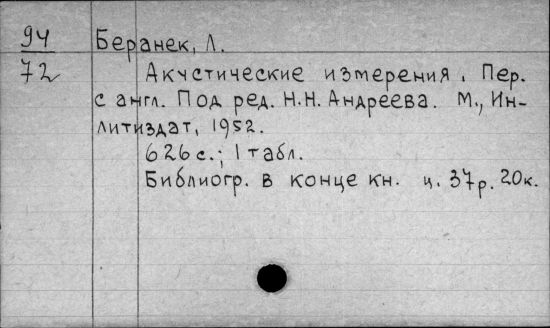 94 Беранек, Л.
72 Акустические измерения. Пер.
с англ. Под ред. Н.Н. Андреева. М., Ин-
литиздат, 1952.
626 с.; 1 табл.
Библиогр. в конце кн. ц. 37р. 20к.